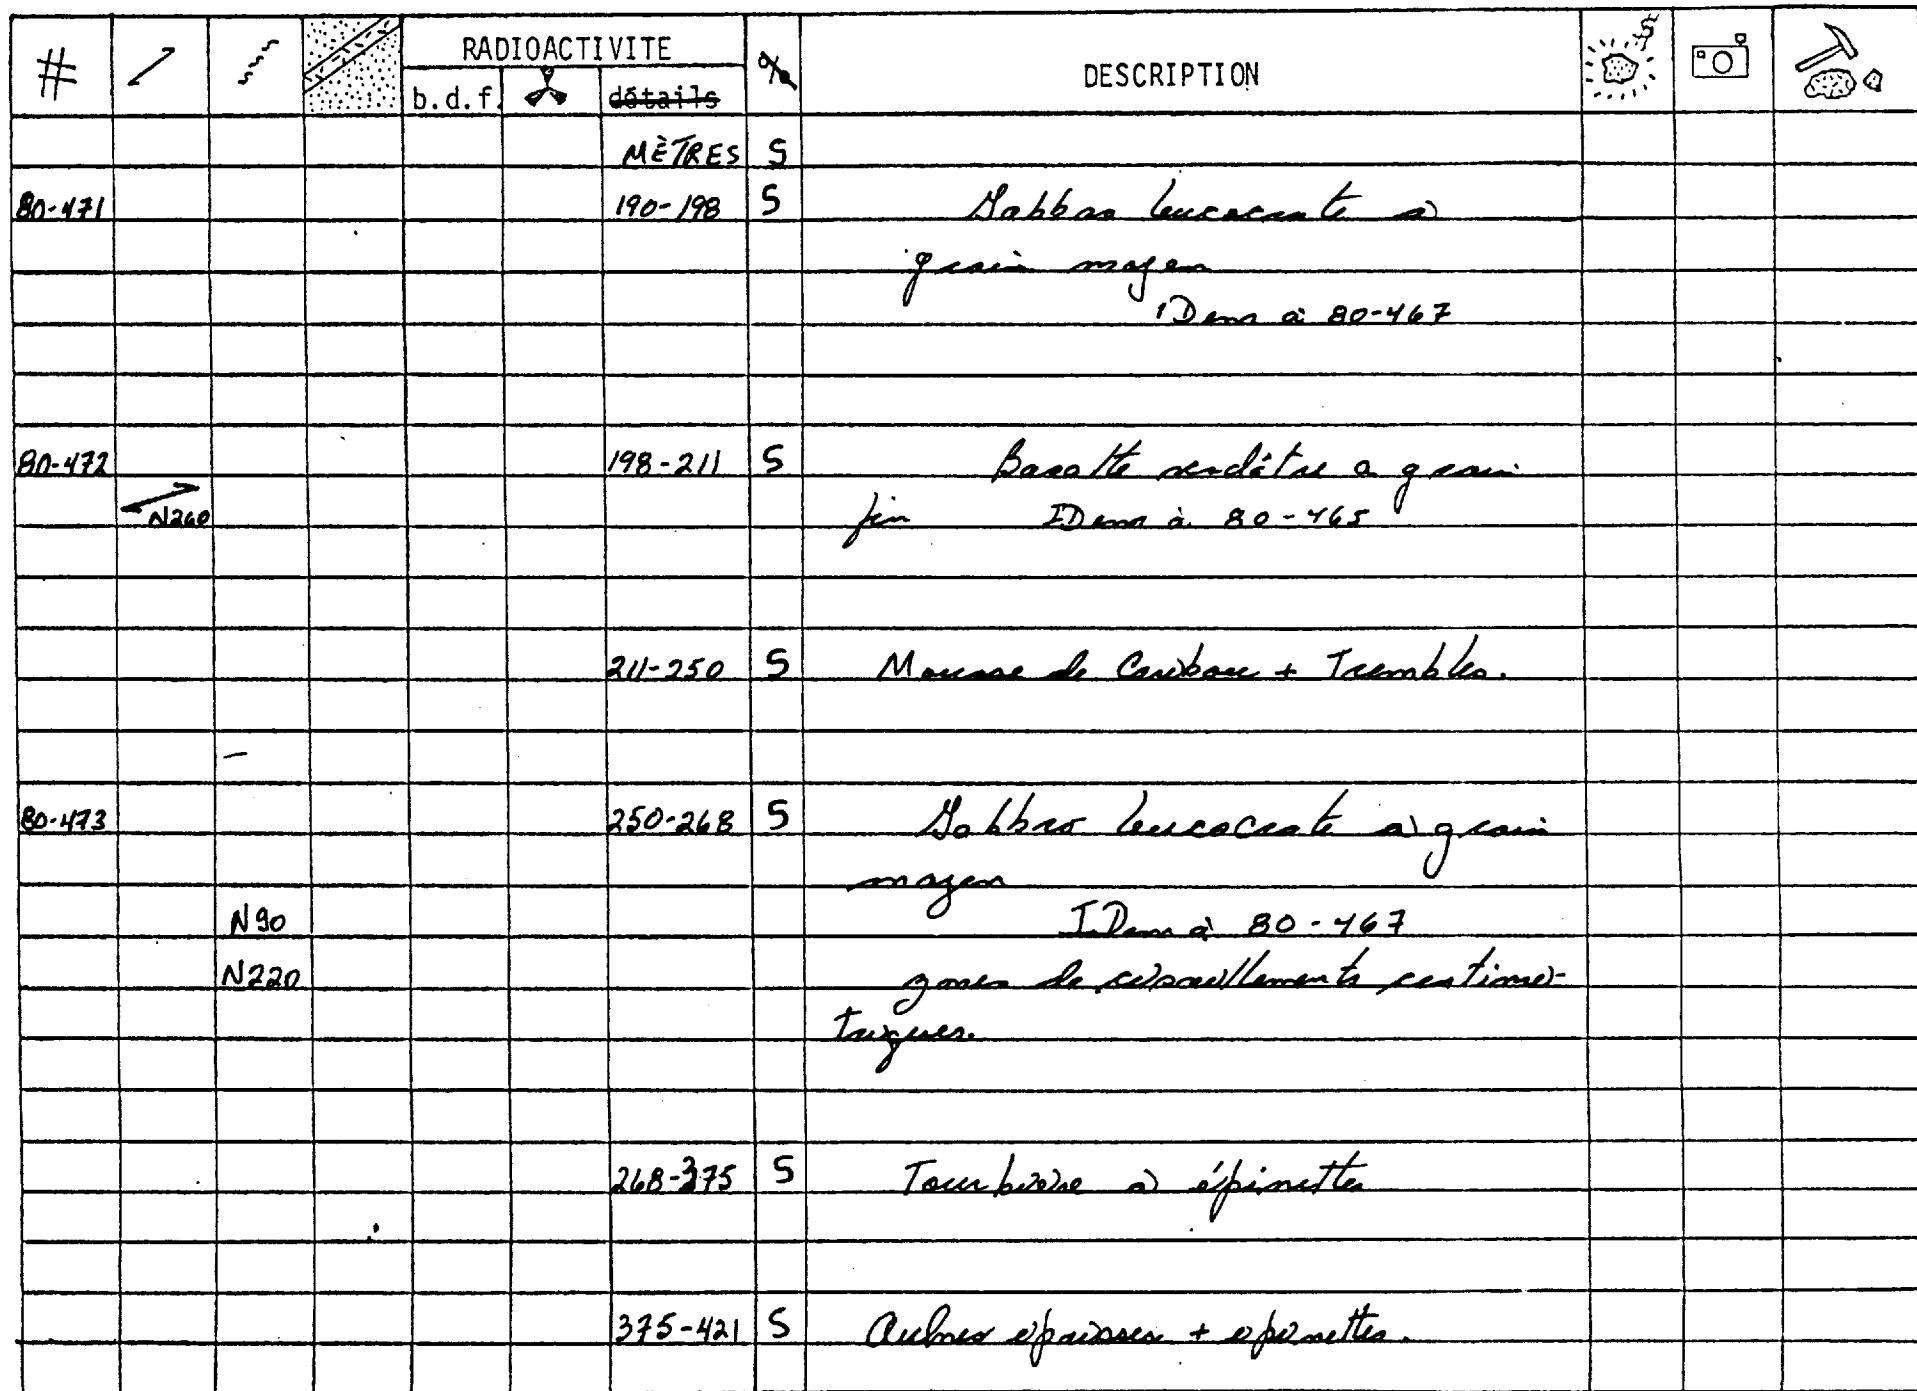 # RADIOACTIVITE % DESCRIPTION $
b.d.f. détails
MÈTRES S
80-471 190-198 S Gabbro leucocrate à
grain moyen
IDem à 80-467
80-472 198-211 S Basalte verdâtre a grain
N260 fin IDem à 80-465
211-250 S Mousse de Caribou + Trembles.
80-473 250-268 S Gabbro leucocrate à grain
moyen
N90 IDem à 80-467
N220 zones de cisaillements centimé-
triques.
268-375 S Tourbière à épinettes
375-421 S Aulnes épaisses + epinettes.